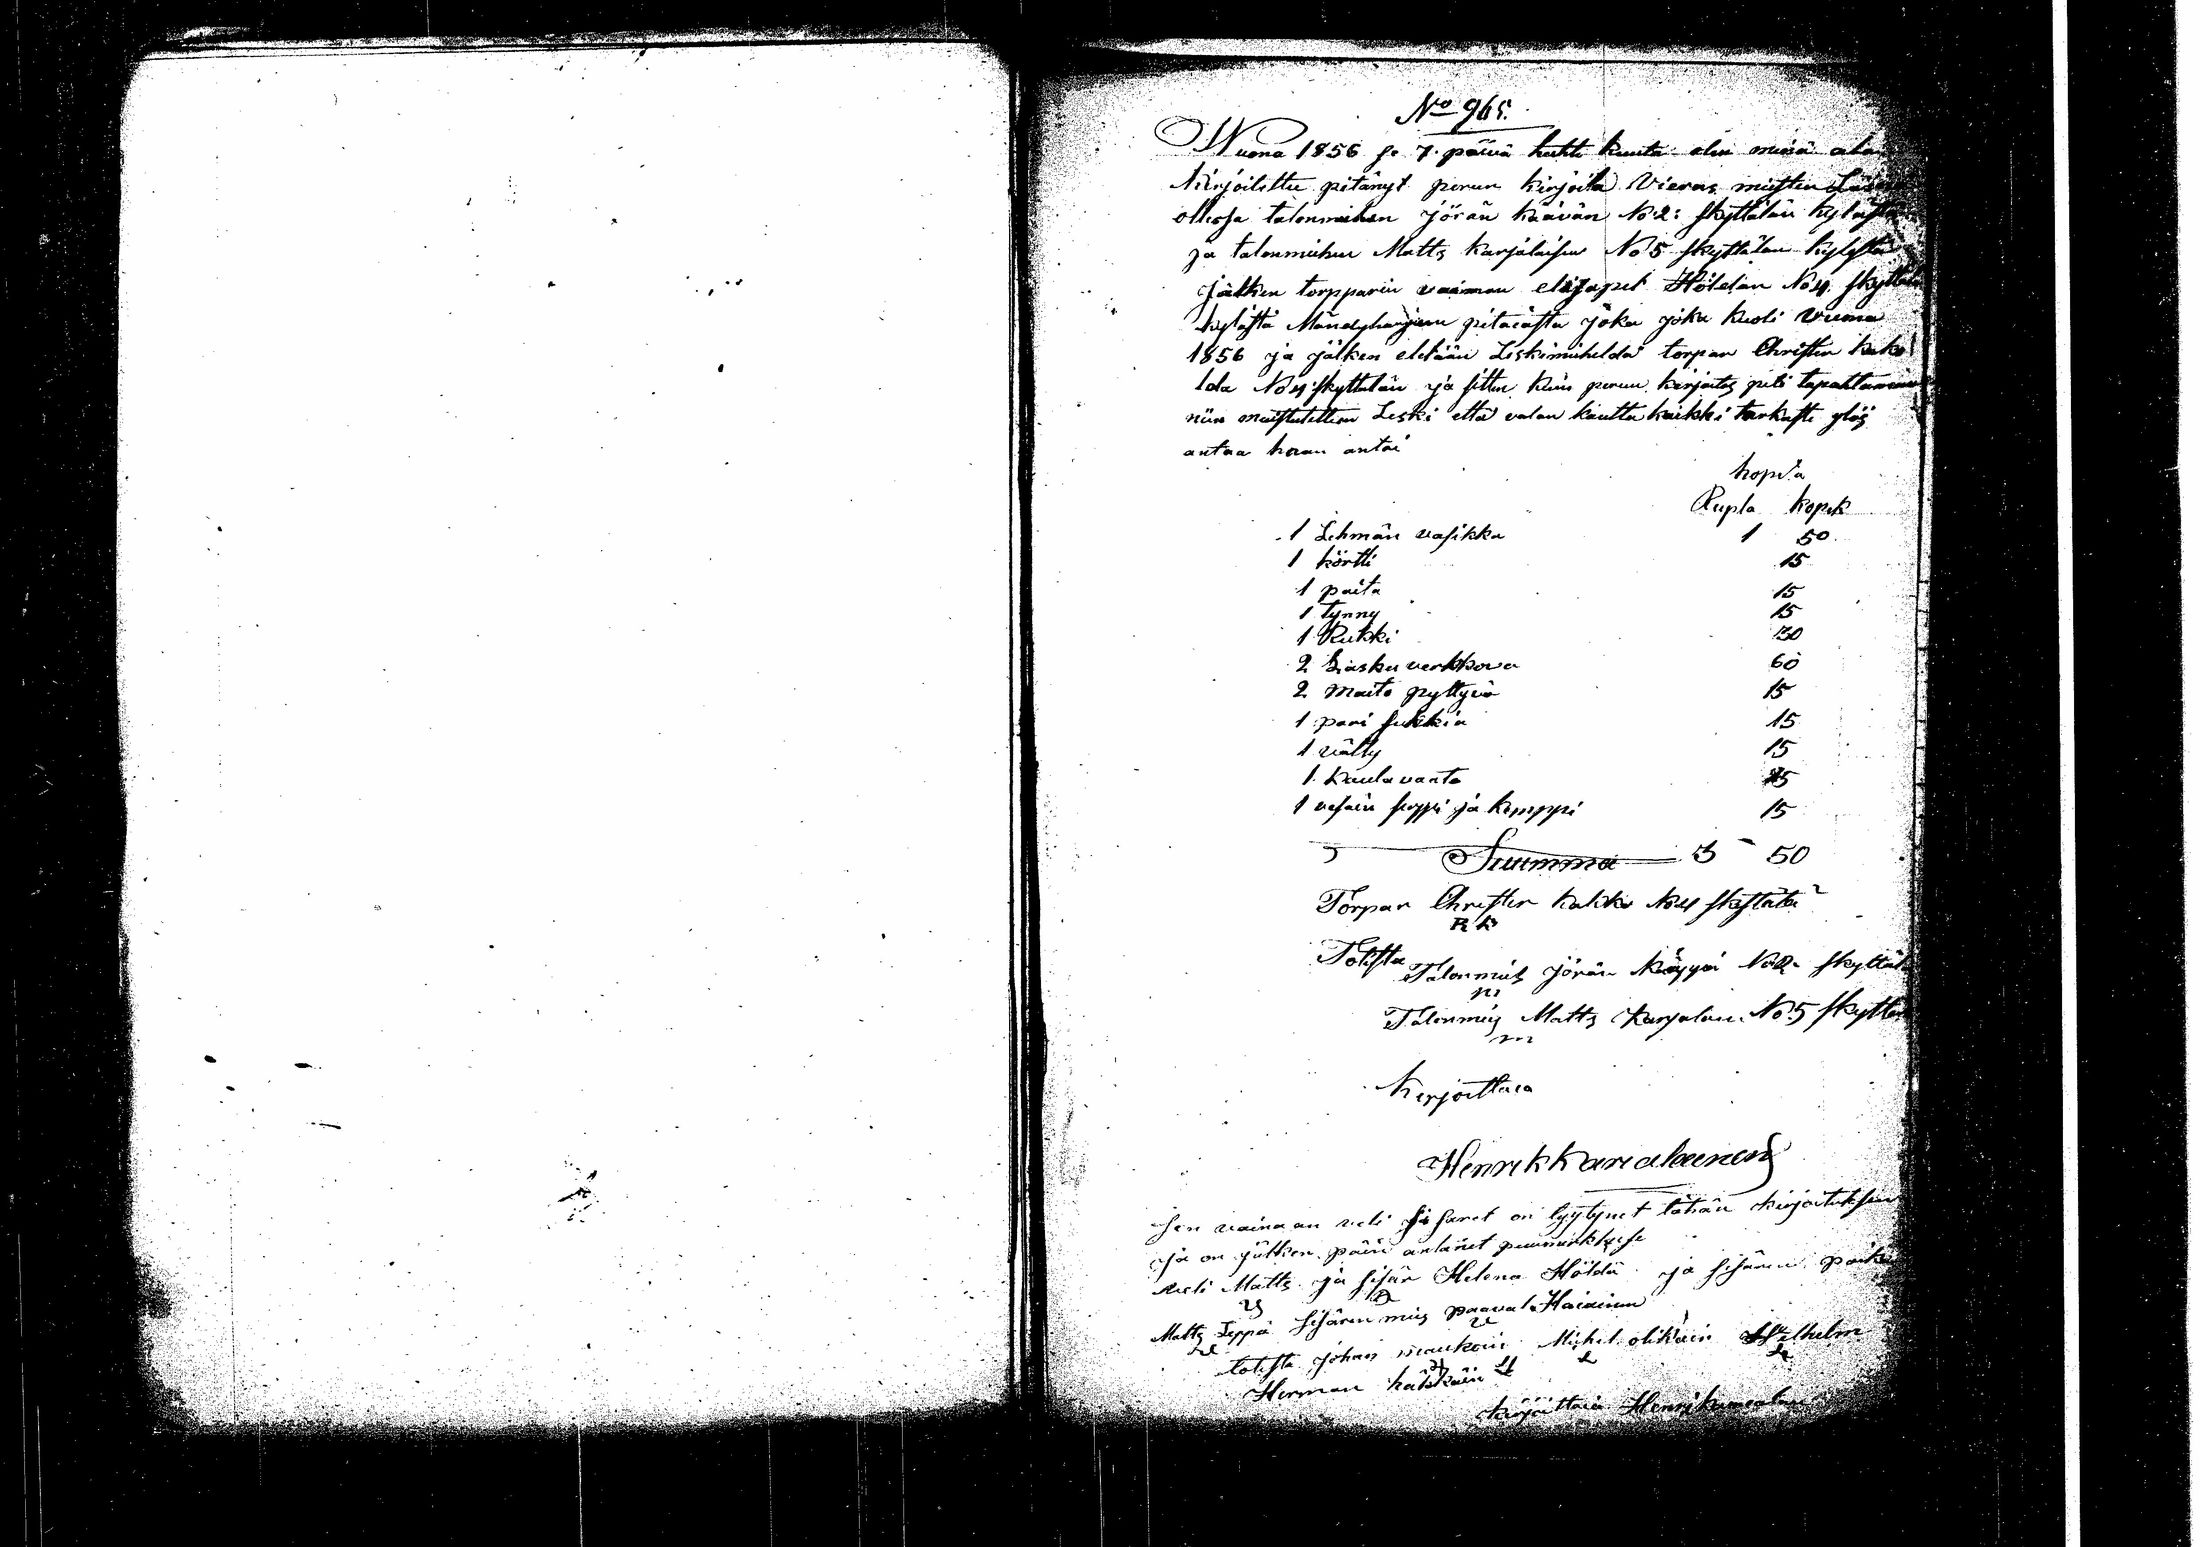 No 965.
Wuona 1856 se 7. päivä huhti kuuta olen minä ala
Kirjoitettu pitänyt perun kirjoita Vieras miesten Läsnä
ollessa talonmiehen Jörän Käävän No 2: Skyttälän kylästä
ja talonmiehen Matts Karjalaisen No 5 Skyttälän kylästä
jälken torpparin vaimon elisapet Höldän No 4 Skyttälän
kylästä Mändyharjun pitäiästä joka joka kuoli Vuona
1856 ja jälken elitään Leskimieheldä torpar Christer kako
lda No 4 Skyttälän ja sitten kuin perun kirjoitus piti tapahtaman
niin muistutettiin Leski että valan kautta kaikki tarkasti ylös
antaa hään antoi
hopia
Rupla kopek
1 Lehmän vasikka 1 50
1 körtti 15
1 paita 15
1 tynny 15
1 Rukki 30
2 Liaska verkkova 60
2 maito pyttyiä 15
1 pari sukkia 15
1 vältty 15
1 kaulavaate 15
1 vesain soppi ja kimppi 15
Summa 3 50
Torpar Christer kakko No 4 Skyttälä
R K
Totista
Talonmies Jörän Käyyä No 2 Skyttälä
Talonmies Matts Karjalain No 5 Skyttälä
m
Kirjoittaia
Henrik Karialainen
sen vainaan veli sisaret on tyytynet tähän kirjoituksen
ja on jälken päin antanet puumerkkinse
veli Matts ja sisär Helena Höldä ja sisären poika
Matts Leppä sisären mies paaval Haiainen
totista Johan maukoin Michel olikain Wilhelm
Herman häkkäin
kirjoittaia Henrik karialain